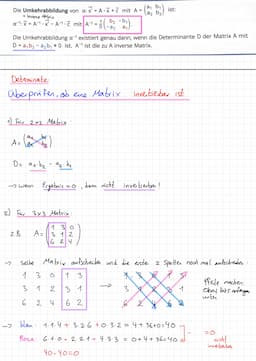 Die Umkehrabbildung von α: x⃗' = A · x⃗ + c⃗ mit A = (a₁ b₁ a₂ b₂) ist:
= inverse Abb.
α⁻¹: x⃗ = A⁻¹ · x⃗' − A⁻¹ · c⃗ mit A⁻¹ = 1/D (b₂ −b₁ −a₂ a₁)
Die Umkehrabbildung α⁻¹ existiert genau dann, wenn die Determinante D der Matrix A mit
D = a₁b₂ − a₂b₁ ≠ 0 ist. A⁻¹ ist die zu A inverse Matrix.
Determinate
Überprüfen, ob eine Matrix invertierbar ist
1) Für 2x2 Matrix
A =
D = a₁ · b₂ − a₂ · b₁
→ wenn Ergebnis = 0, dann nicht invertierbar!
2) Für 3x3 Matrix
z.B. A = (1 3 0
3 1 2
6 2 4)
→ selbe Matrix aufschreiben und die erste 2 Spalten noch mal aufschreiben
1 3 0 1 3
3 1 2 3 1
6 2 4 6 2
Pfeile machen
oben links anfangen
→ Blau: 1·1·4 + 3·2·6 + 0·3·2 = 4+36+0=40
Rosa: 6·1·0 + 2·2·1 + 4·3·3 = 0+4+36=40
40-40=0
=0
nicht
invertierbar